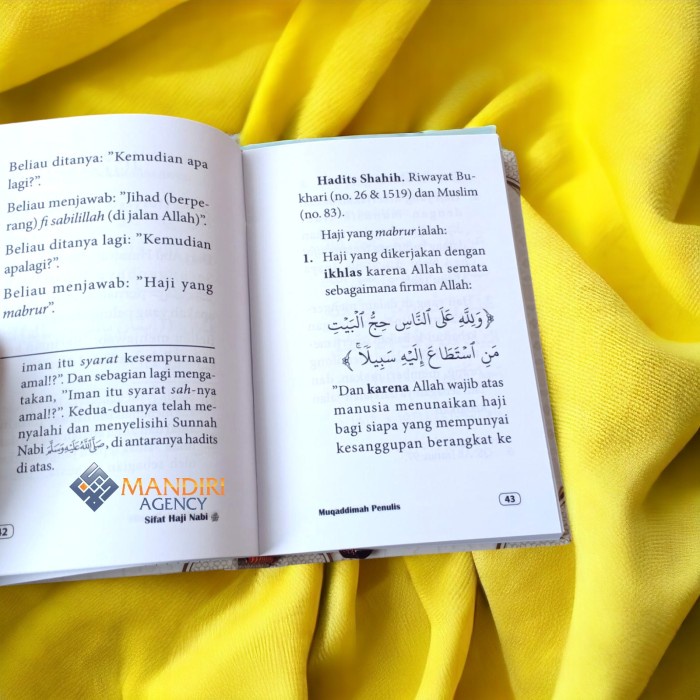 Beliau ditanya: "Kemudian apa
lagi?".
Beliau menjawab: "Jihad (berpe-
rang) fi sabilillah (di jalan Allah)".
Beliau ditanya lagi: "Kemudian
apalagi?".
Beliau menjawab: "Haji yang
mabrur".
iman itu syarat kesempurnaan
amal!?". Dan sebagian lagi menga-
takan, "Iman itu syarat sah-nya
amal!?". Kedua-duanya telah me-
nyalahi dan menyelisihi Sunnah
Nabi ﷺ, di antaranya hadits
di atas.
MANDIRI
AGENCY
Sifat Haji Nabi ﷺ
42
Hadits Shahih. Riwayat Bu-
khari (no. 26 & 1519) dan Muslim
(no. 83).
Haji yang mabrur ialah:
1. Haji yang dikerjakan dengan
ikhlas karena Allah semata
sebagaimana firman Allah:
﴿وَلِلَّهِ عَلَى ٱلنَّاسِ حِجُّ ٱلْبَيْتِ
مَنِ ٱسْتَطَاعَ إِلَيْهِ سَبِيلًا ۚ﴾
"Dan karena Allah wajib atas
manusia menunaikan haji
bagi siapa yang mempunyai
kesanggupan berangkat ke
Muqaddimah Penulis
43